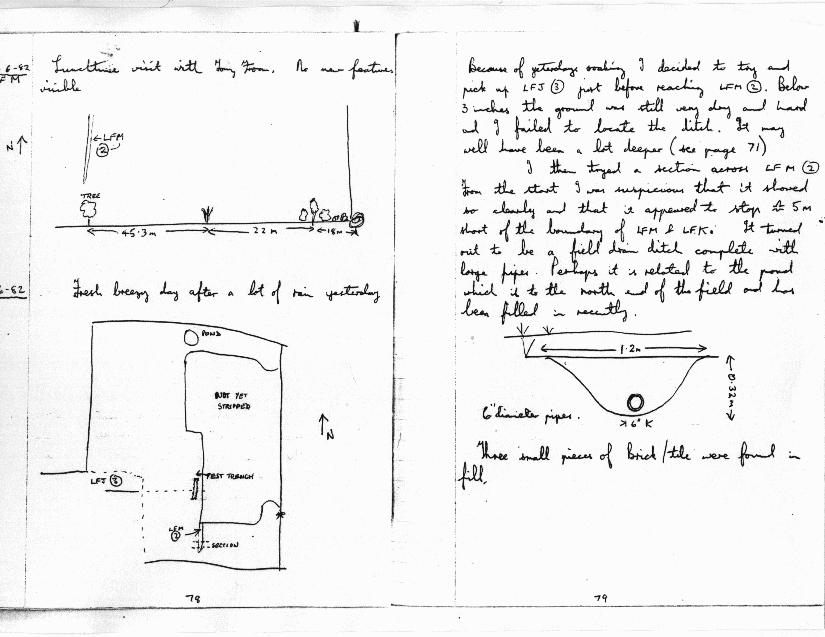 6-82
FM
Lunchtime visit with Tony From. No new features
visible
N
LFM
②
TREE
45.3m
22m
18m
6-82
Fresh breezy day after a lot of rain yesterday
POND
NOT YET
STRIPPED
N
TEST TRENCH
LFJ ③
LFM
②
SECTION
78
Because of yesterdays soaking I decided to try and
pick up LFJ ③ just before reaching LFM ②. Below
3 inches the ground was still very dry and hard
and I failed to locate the ditch. It may
well have been a lot deeper (see page 71)
I then tryed a section across LFM ②
From the start I was suspicious that it showed
so clearly and that it appeared to stop 5m
short of the boundary of LFM & LFK. It turned
out to be a field drain ditch complete with
large pipes. Perhaps it is related to the pond
which is to the north end of the field and has
been filled in recently.
1.2m
0.32m
6" diameter pipes.
6"
Three small pieces of Brick/tile were found in
fill.
79